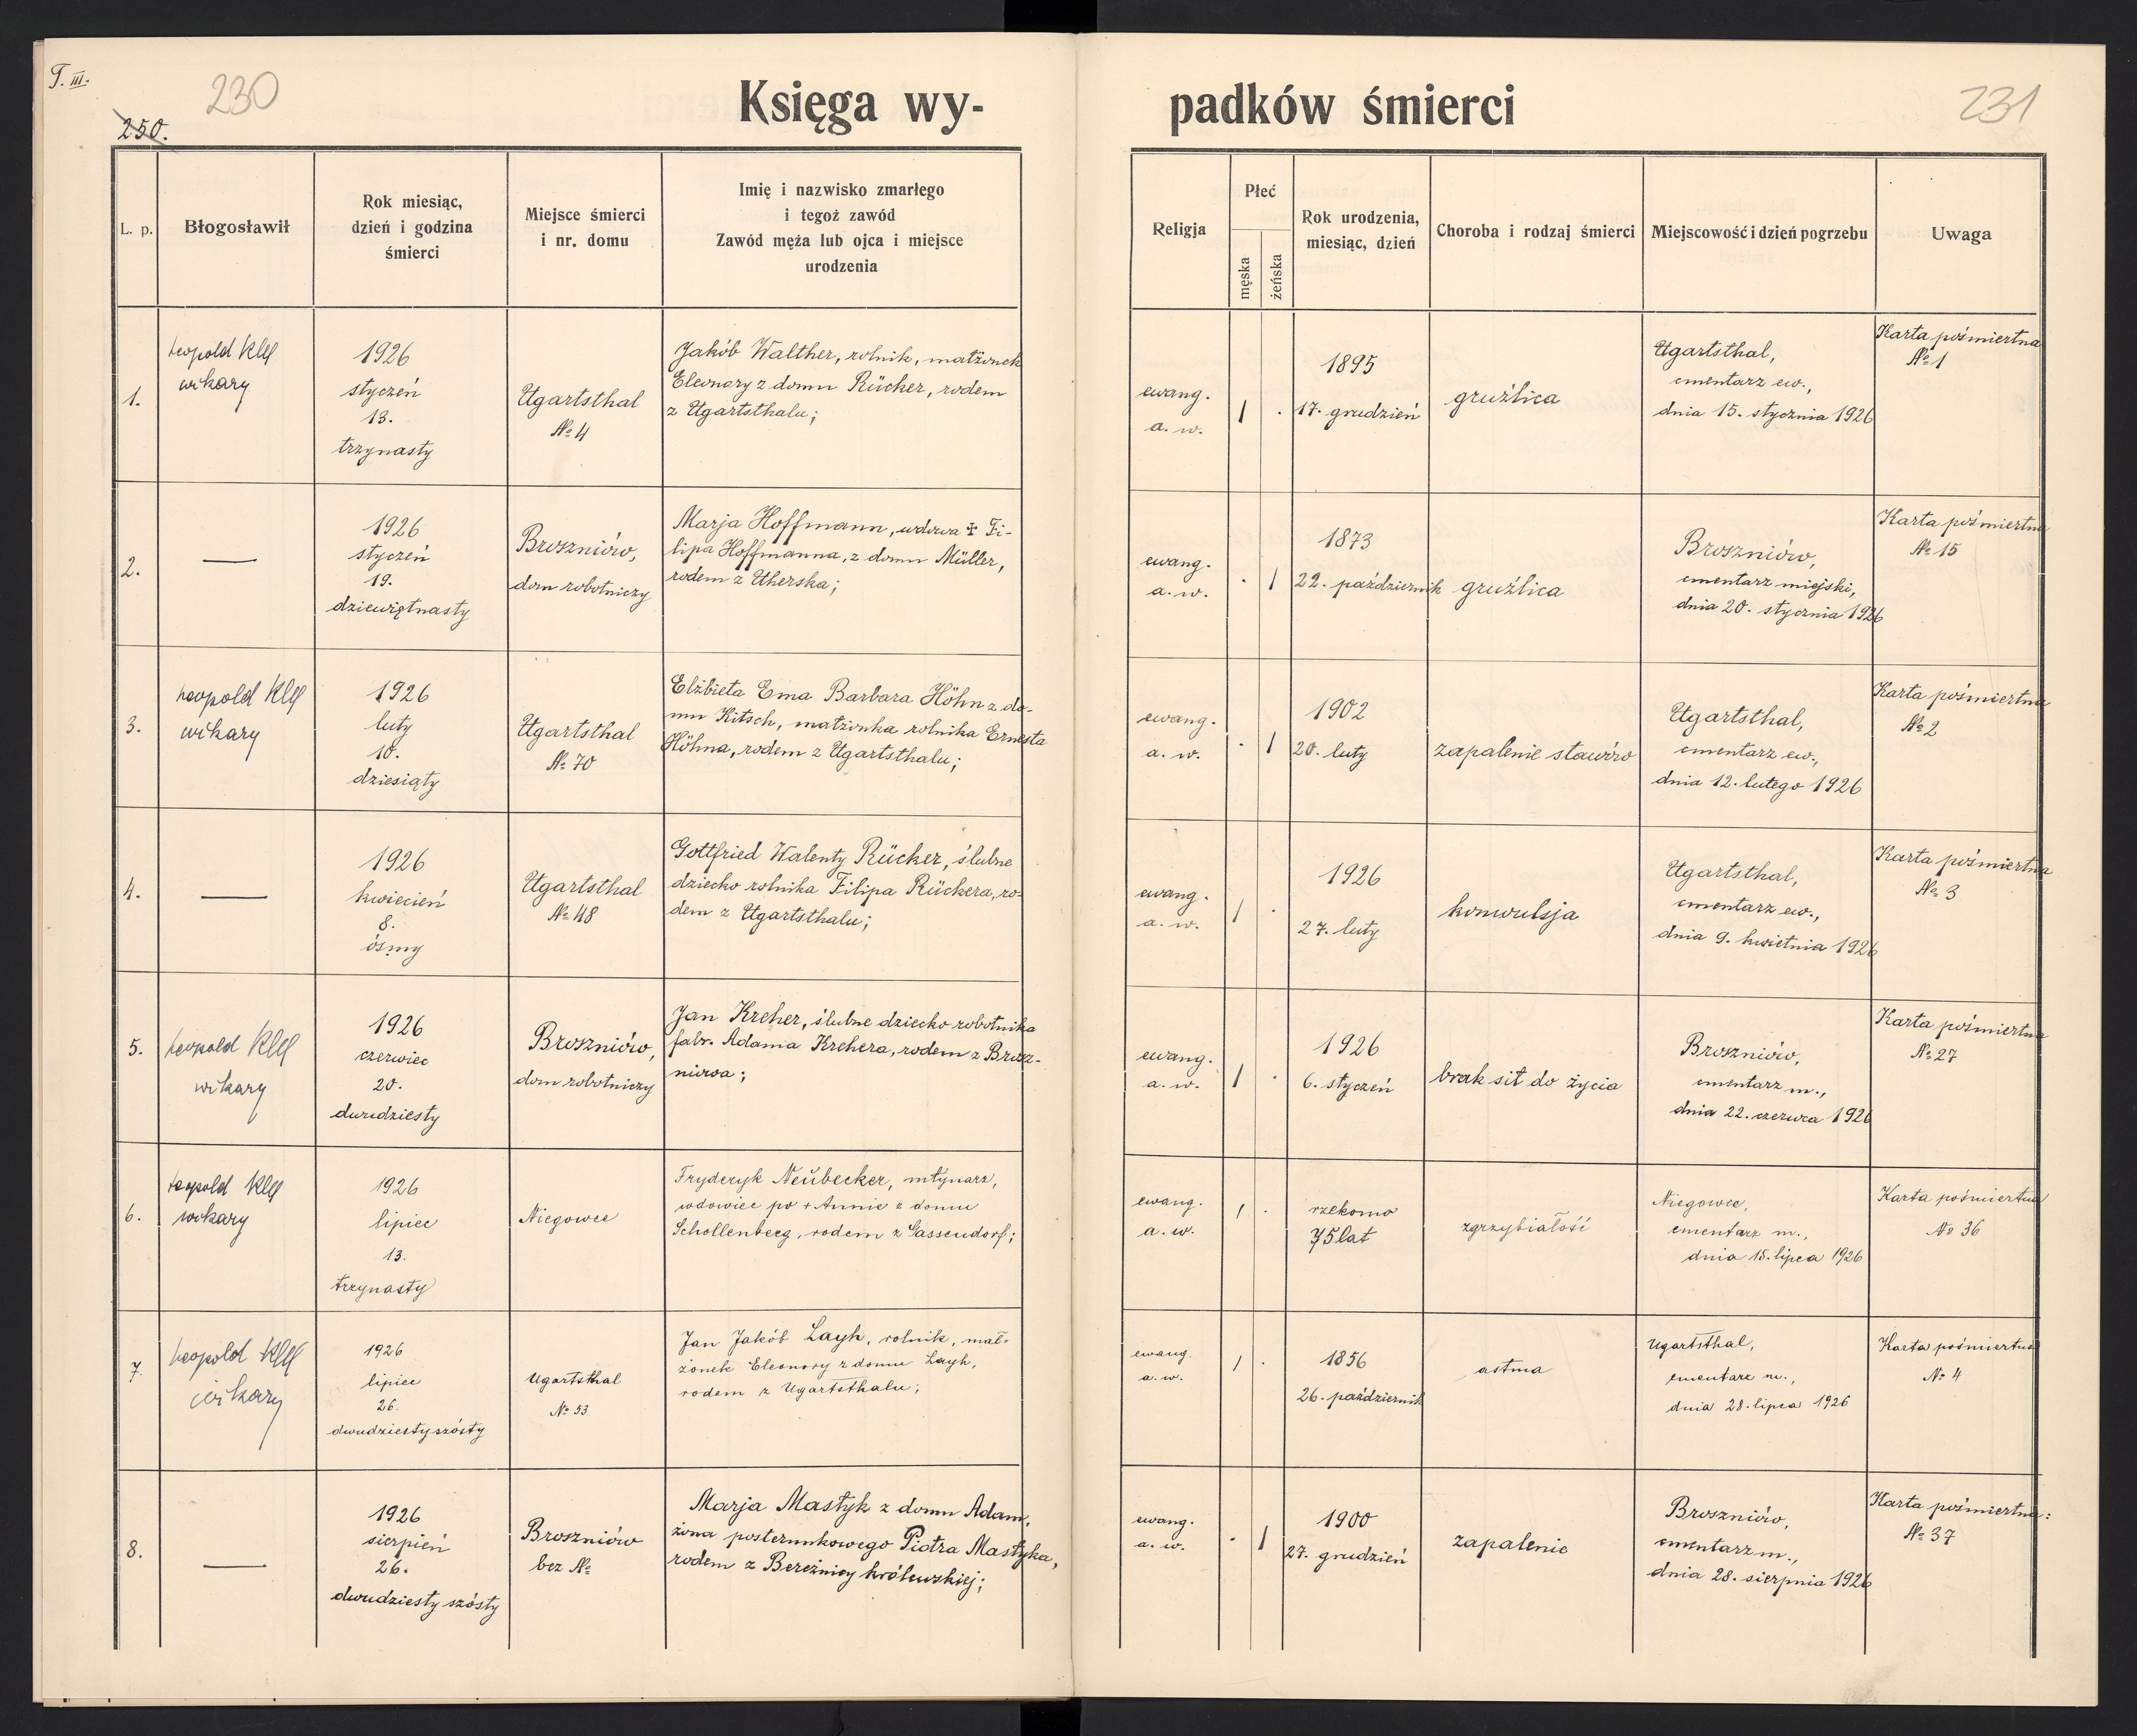 T. III.
230
250.
Księga wy-
padków śmierci
231
L. p.
Błogosławił
Rok miesiąc,
dzień i godzina
śmierci
Miejsce śmierci
i nr. domu
Imię i nazwisko zmarłego
i tegoż zawód
Zawód męża lub ojca i miejsce
urodzenia
Religja
Płeć
męska
żeńska
Rok urodzenia,
miesiąc, dzień
Choroba i rodzaj śmierci
Miejscowość i dzień pogrzebu
Uwaga
1.
Leopold Klee
wikary
1926
styczeń
13.
trzynasty
Ugartsthal
№ 4
Jakób Walther, rolnik, małżonek
Eleonory z domu Rücker, rodem
z Ugartsthalu;
ewang.
a. w.
1 .
1895
17. grudzień
gruźlica
Ugartsthal,
cmentarz ew.,
dnia 15. stycznia 1926
Karta pośmiertna
№ 1
2.
—
1926
styczeń
19.
dziewiętnasty
Broszniów,
dom robotniczy
Marja Hoffmann, wdowa ✠ Fi-
lipa Hoffmanna, z domu Müller,
rodem z Utherska;
ewang.
a. w.
. 1
1873
22. październik
gruźlica
Broszniów,
cmentarz miejski,
dnia 20. stycznia 1926
Karta pośmiertna
№ 15
3.
Leopold Klee
wikary
1926
luty
10.
dziesiąty
Ugartsthal
№ 70
Elżbieta Ema Barbara Höhn z do-
mu Kitsch, małżonka rolnika Ernesta
Höhna, rodem z Ugartsthalu;
ewang.
a. w.
. 1
1902
20. luty
zapalenie stawów
Ugartsthal,
cmentarz ew.,
dnia 12. lutego 1926
Karta pośmiertna
№ 2
4.
—
1926
kwiecień
8.
ósmy
Ugartsthal
№ 48
Gottfried Walenty Rücker, ślubne
dziecko rolnika Filipa Rückera, ro-
dem z Ugartsthalu;
ewang.
a. w.
1 .
1926
27. luty
konwulsja
Ugartsthal,
cmentarz ew.,
dnia 9. kwietnia 1926
Karta pośmiertna
№ 3
5.
Leopold Klee
wikary
1926
czerwiec
20.
dwudziesty
Broszniów,
dom robotniczy
Jan Kreher, ślubne dziecko robotnika
fabr. Adama Krehera, rodem z Brosz-
niowa;
ewang.
a. w.
1 .
1926
6. styczeń
brak sił do życia
Broszniów,
cmentarz m.,
dnia 22. czerwca 1926
Karta pośmiertna
№ 27
6.
Leopold Klee
wikary
1926
lipiec
13.
trzynasty
Niegowce
Fryderyk Neubecker, młynarz,
wdowiec po + Annie z domu
Schollenberg, rodem z Sassendorf;
ewang.
a. w.
1 .
rzekomo
75 lat
zgrzybiałość
Niegowce,
cmentarz m.,
dnia 15. lipca 1926
Karta pośmiertna
№ 36
7.
Leopold Klee
wikary
1926
lipiec
26.
dwudziesty szósty
Ugartsthal
№ 53
Jan Jakób Layh, rolnik, mał-
żonek Eleonory z domu Layh,
rodem z Ugartsthalu;
ewang.
a. w.
1 .
1856
26. październik
astma
Ugartsthal,
cmentarz m.,
dnia 28. lipca 1926
Karta pośmiertna
№ 4
8.
—
1926
sierpień
26.
dwudziesty szósty
Broszniów
bez №
Marja Mastyk z domu Adam,
żona posterunkowego Piotra Mastyka,
rodem z Bereżnicy królewskiej;
ewang.
a. w.
. 1
1900
27. grudzień
zapalenie
Broszniów,
cmentarz m.,
dnia 28. sierpnia 1926
Karta pośmiertna:
№ 37